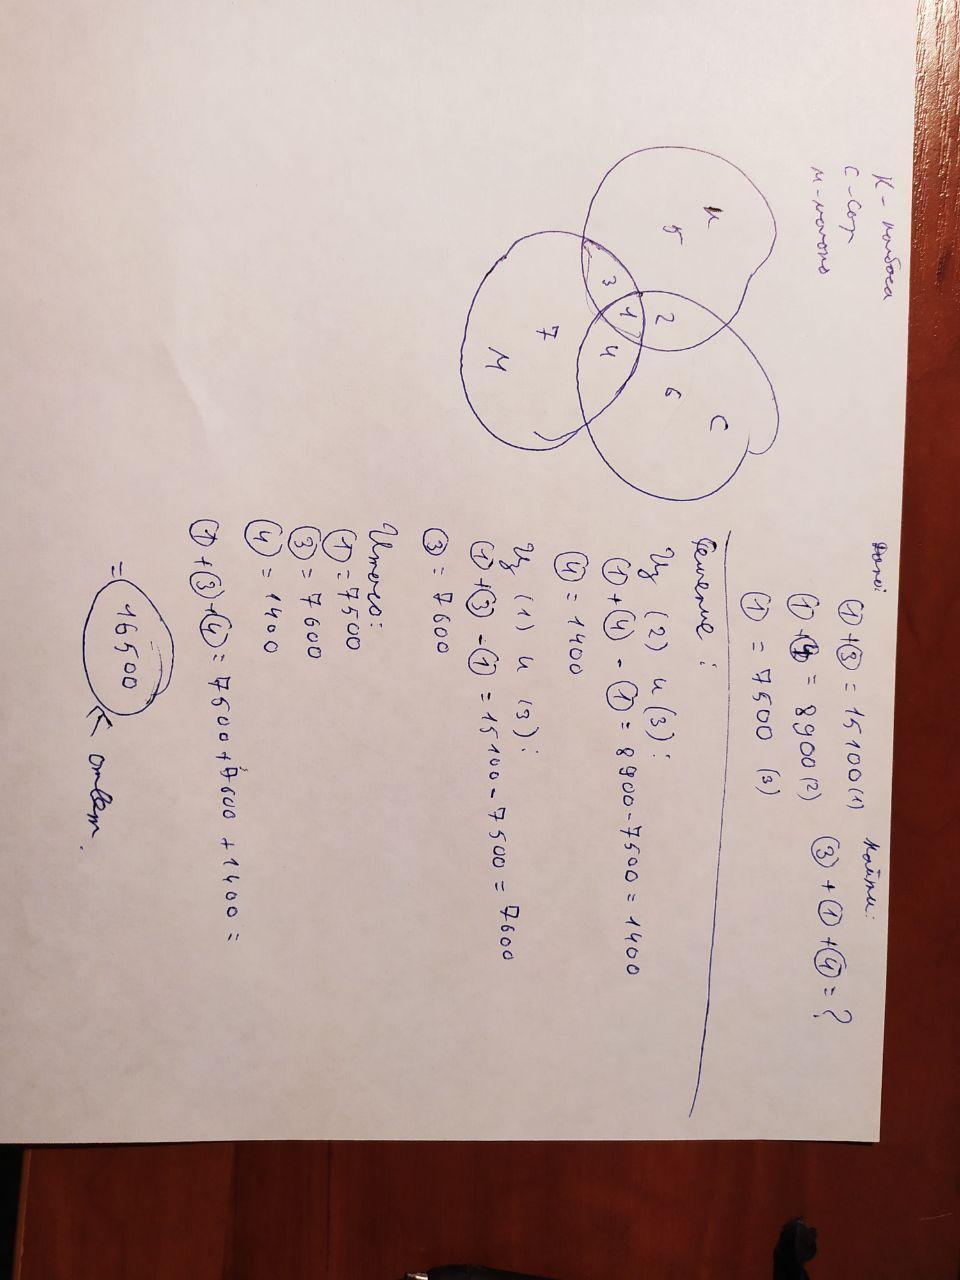 К - колбаса
С - сыр
М - молоко
К
5
3
1
2
7
4
6
М
С
Дано:
① + ③ = 15100 (1)
① + ④ = 8900 (2)
① = 7500 (3)
Найти:
③ + ① + ④ = ?
Решение:
Из (2) и (3):
① + ④ - ① = 8900 - 7500 = 1400
④ = 1400
Из (1) и (3):
① + ③ - ① = 15100 - 7500 = 7600
③ = 7600
Итого:
① = 7500
③ = 7600
④ = 1400
① + ③ + ④ = 7500 + 7600 + 1400 =
= 16500
ответ.